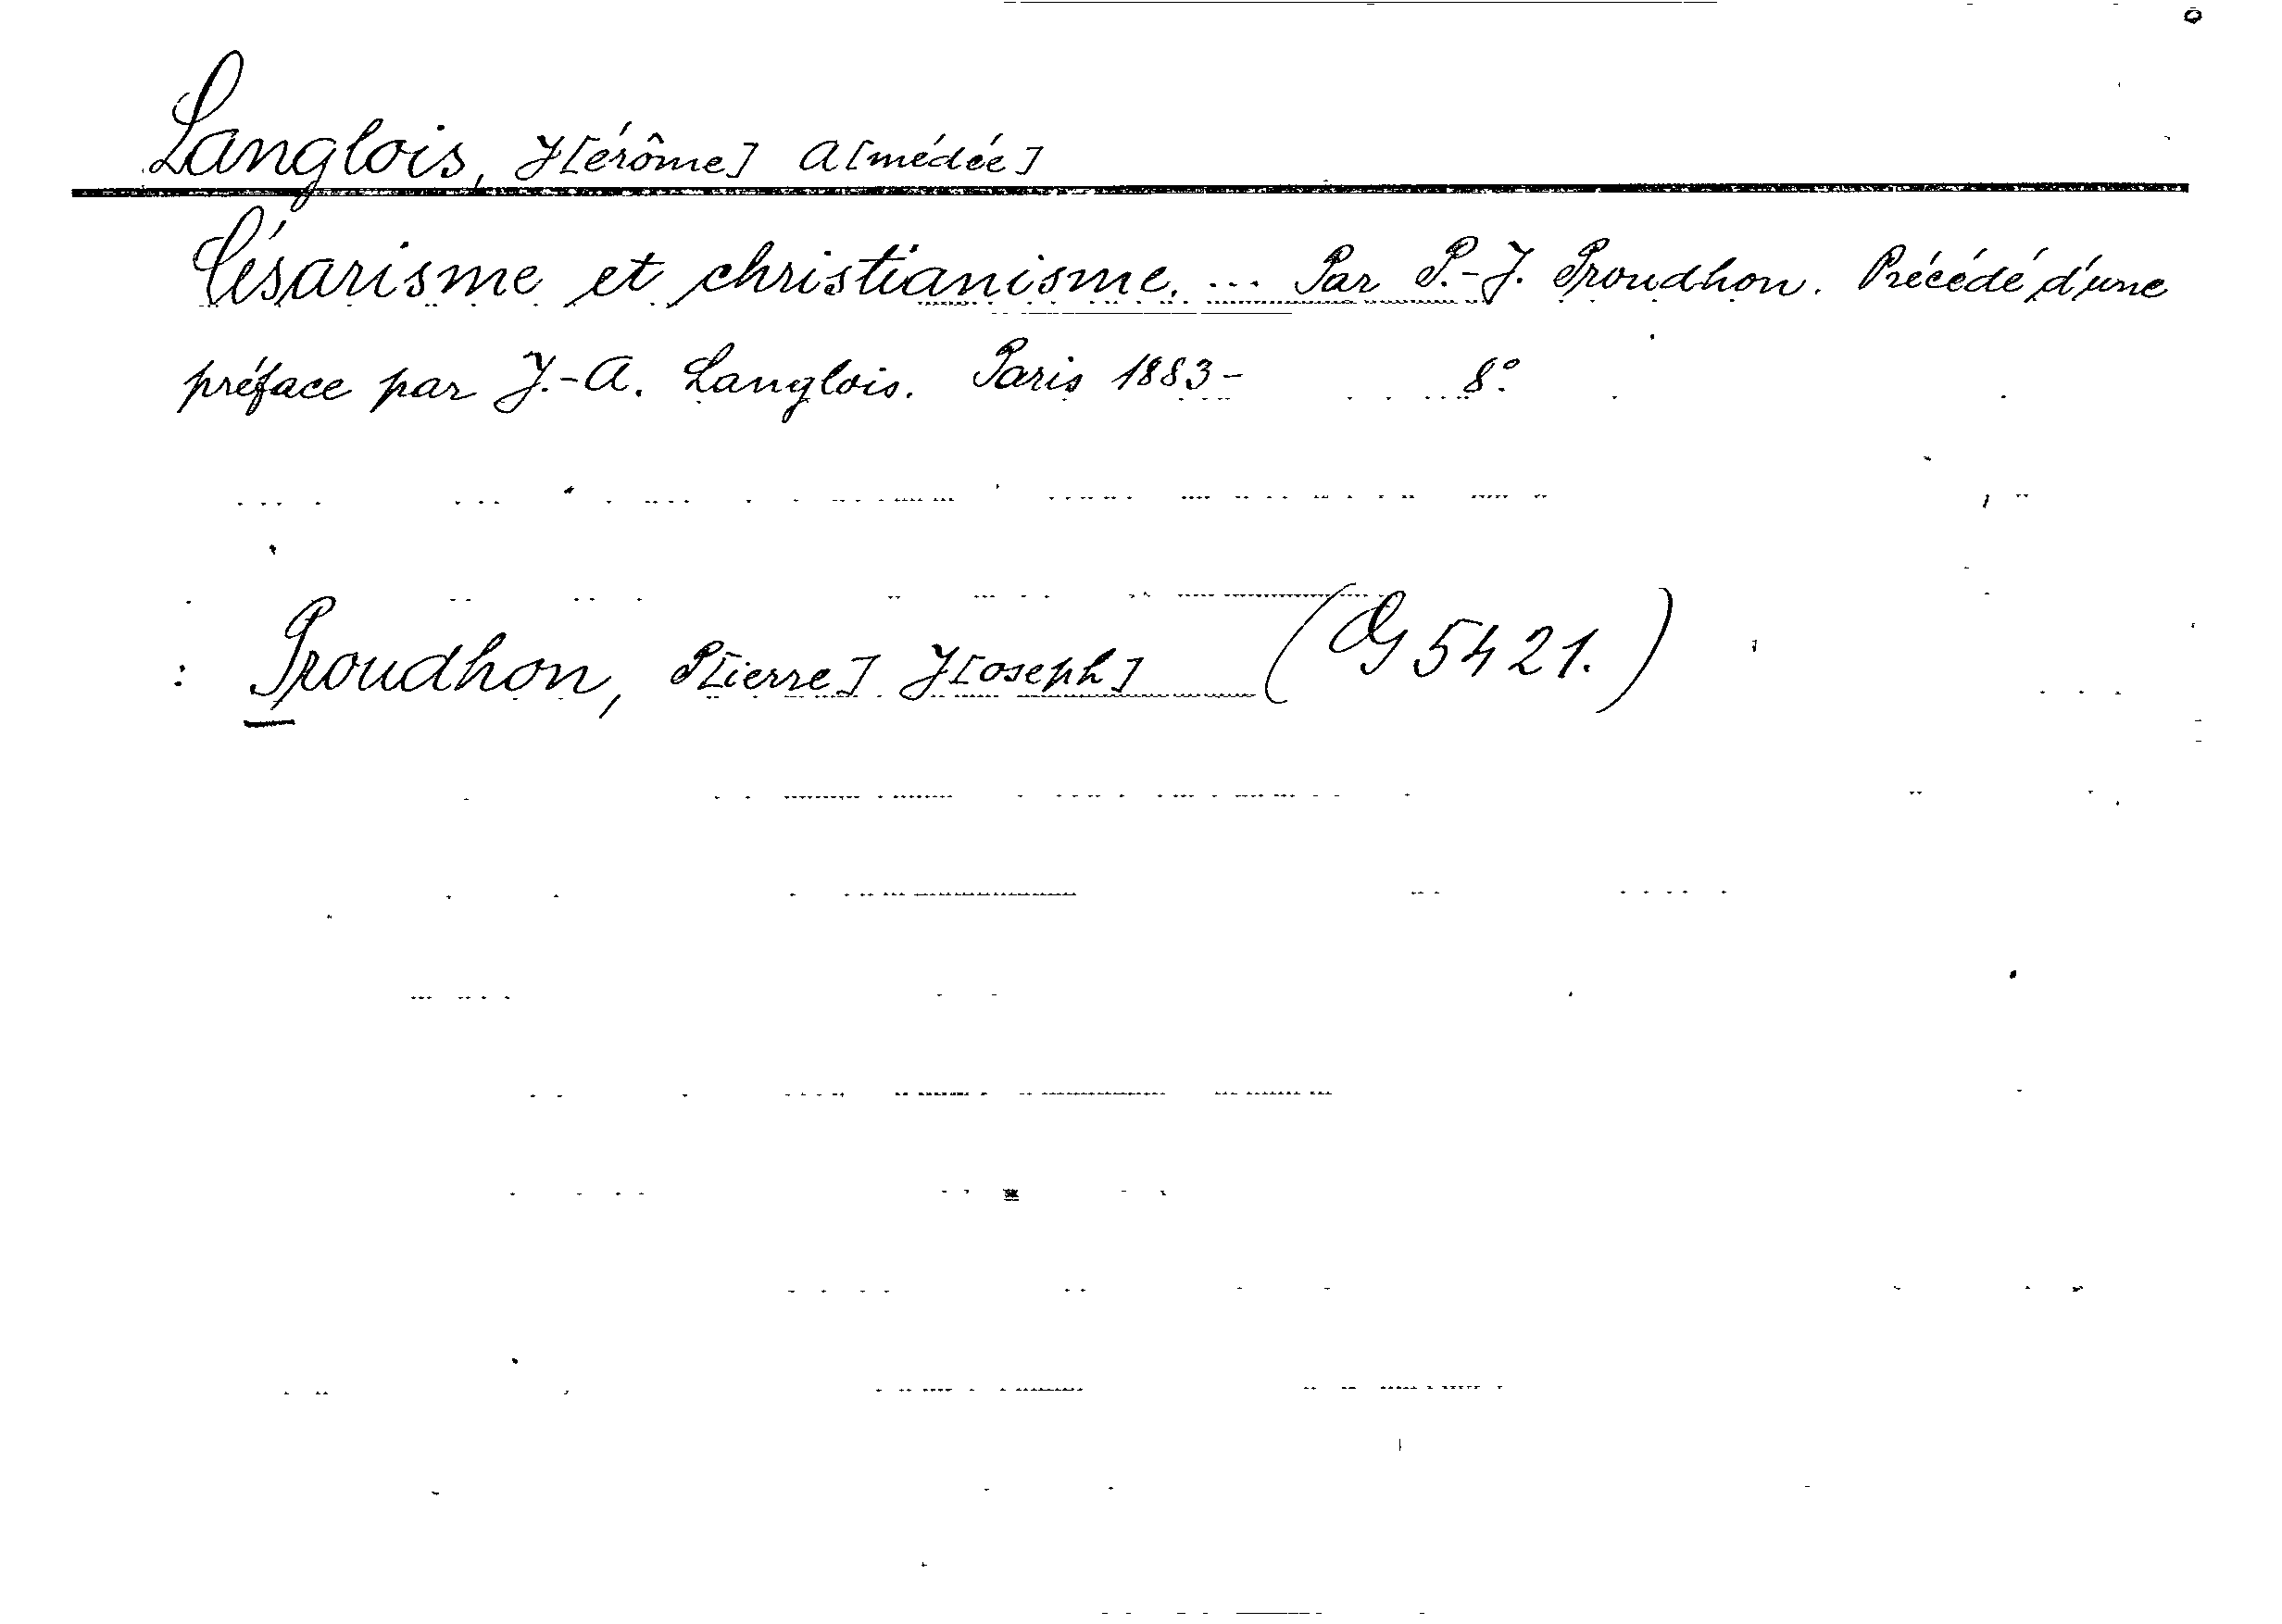 Langlois, J[érôme] A[médée]
Césarisme et christianisme. ... Par P.-J. Proudhon. Précédé d'une
préface par J.-A. Langlois. Paris 1883- 8º.
: Proudhon, P[ierre] J[oseph] (G 5421.)